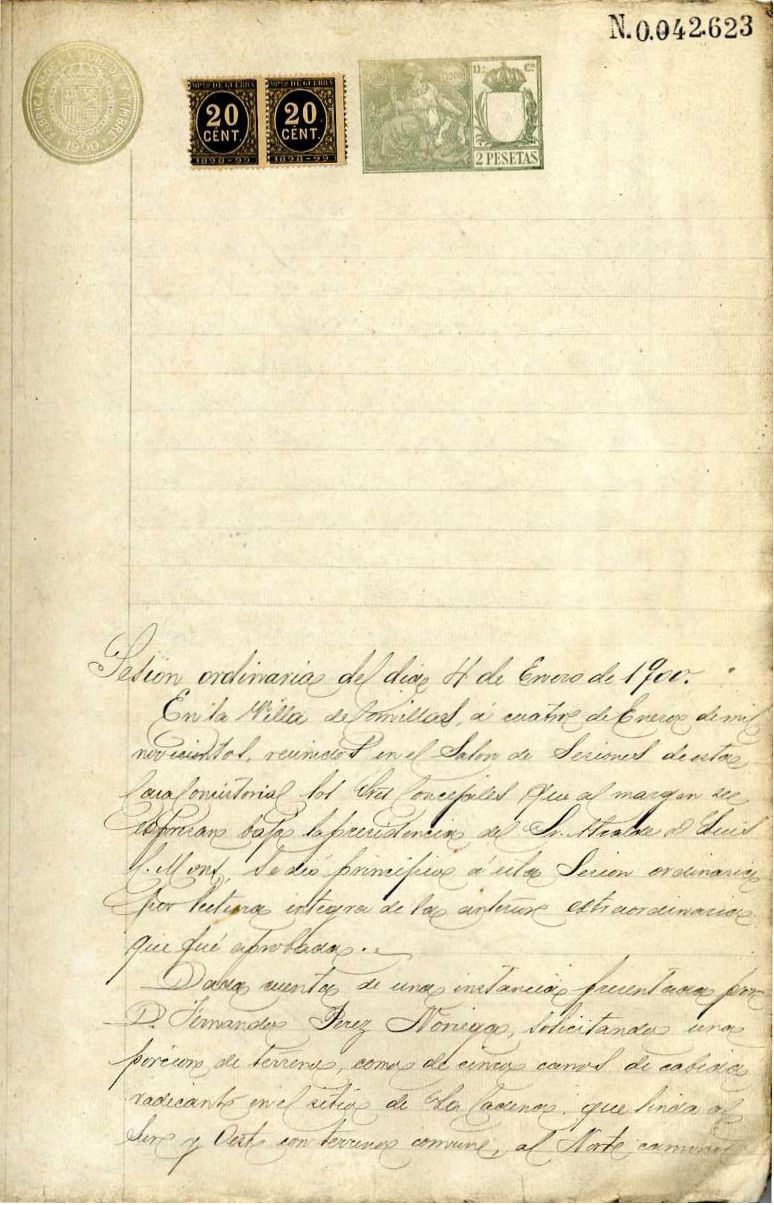 N.0.042.623
FABRICA NACIONAL DE MONEDA Y TIMBRE
1900
MPTO DE GUERRA
20
CENT.
1898-99
MPTO DE GUERRA
20
CENT.
1898-99
1900
11ª Cª
2 PESETAS
Sesión ordinaria del dia 4 de Enero de 1900.
En la Villa de Comillas, á cuatro de Enero de mil
novecientos, reunidos en el Salon de Sesiones de esta
Casa Consistorial los Sres Concejales que al margen se
espresan bajo la presidencia del Sr. Alcalde D Luis
Mons, se dió principio á esta Sesion ordinaria
por lectura integra de la anterior estraordinaria
que fué aprobada.
Dada cuenta de una instancia presentada por
D. Fernando Perez Noriega, solicitando una
porcion de terreno, como de cinco carros de cabida
radicante en el sitio de La Cadena. que linda al
Sur y Oeste con terreno comun, al Norte camino